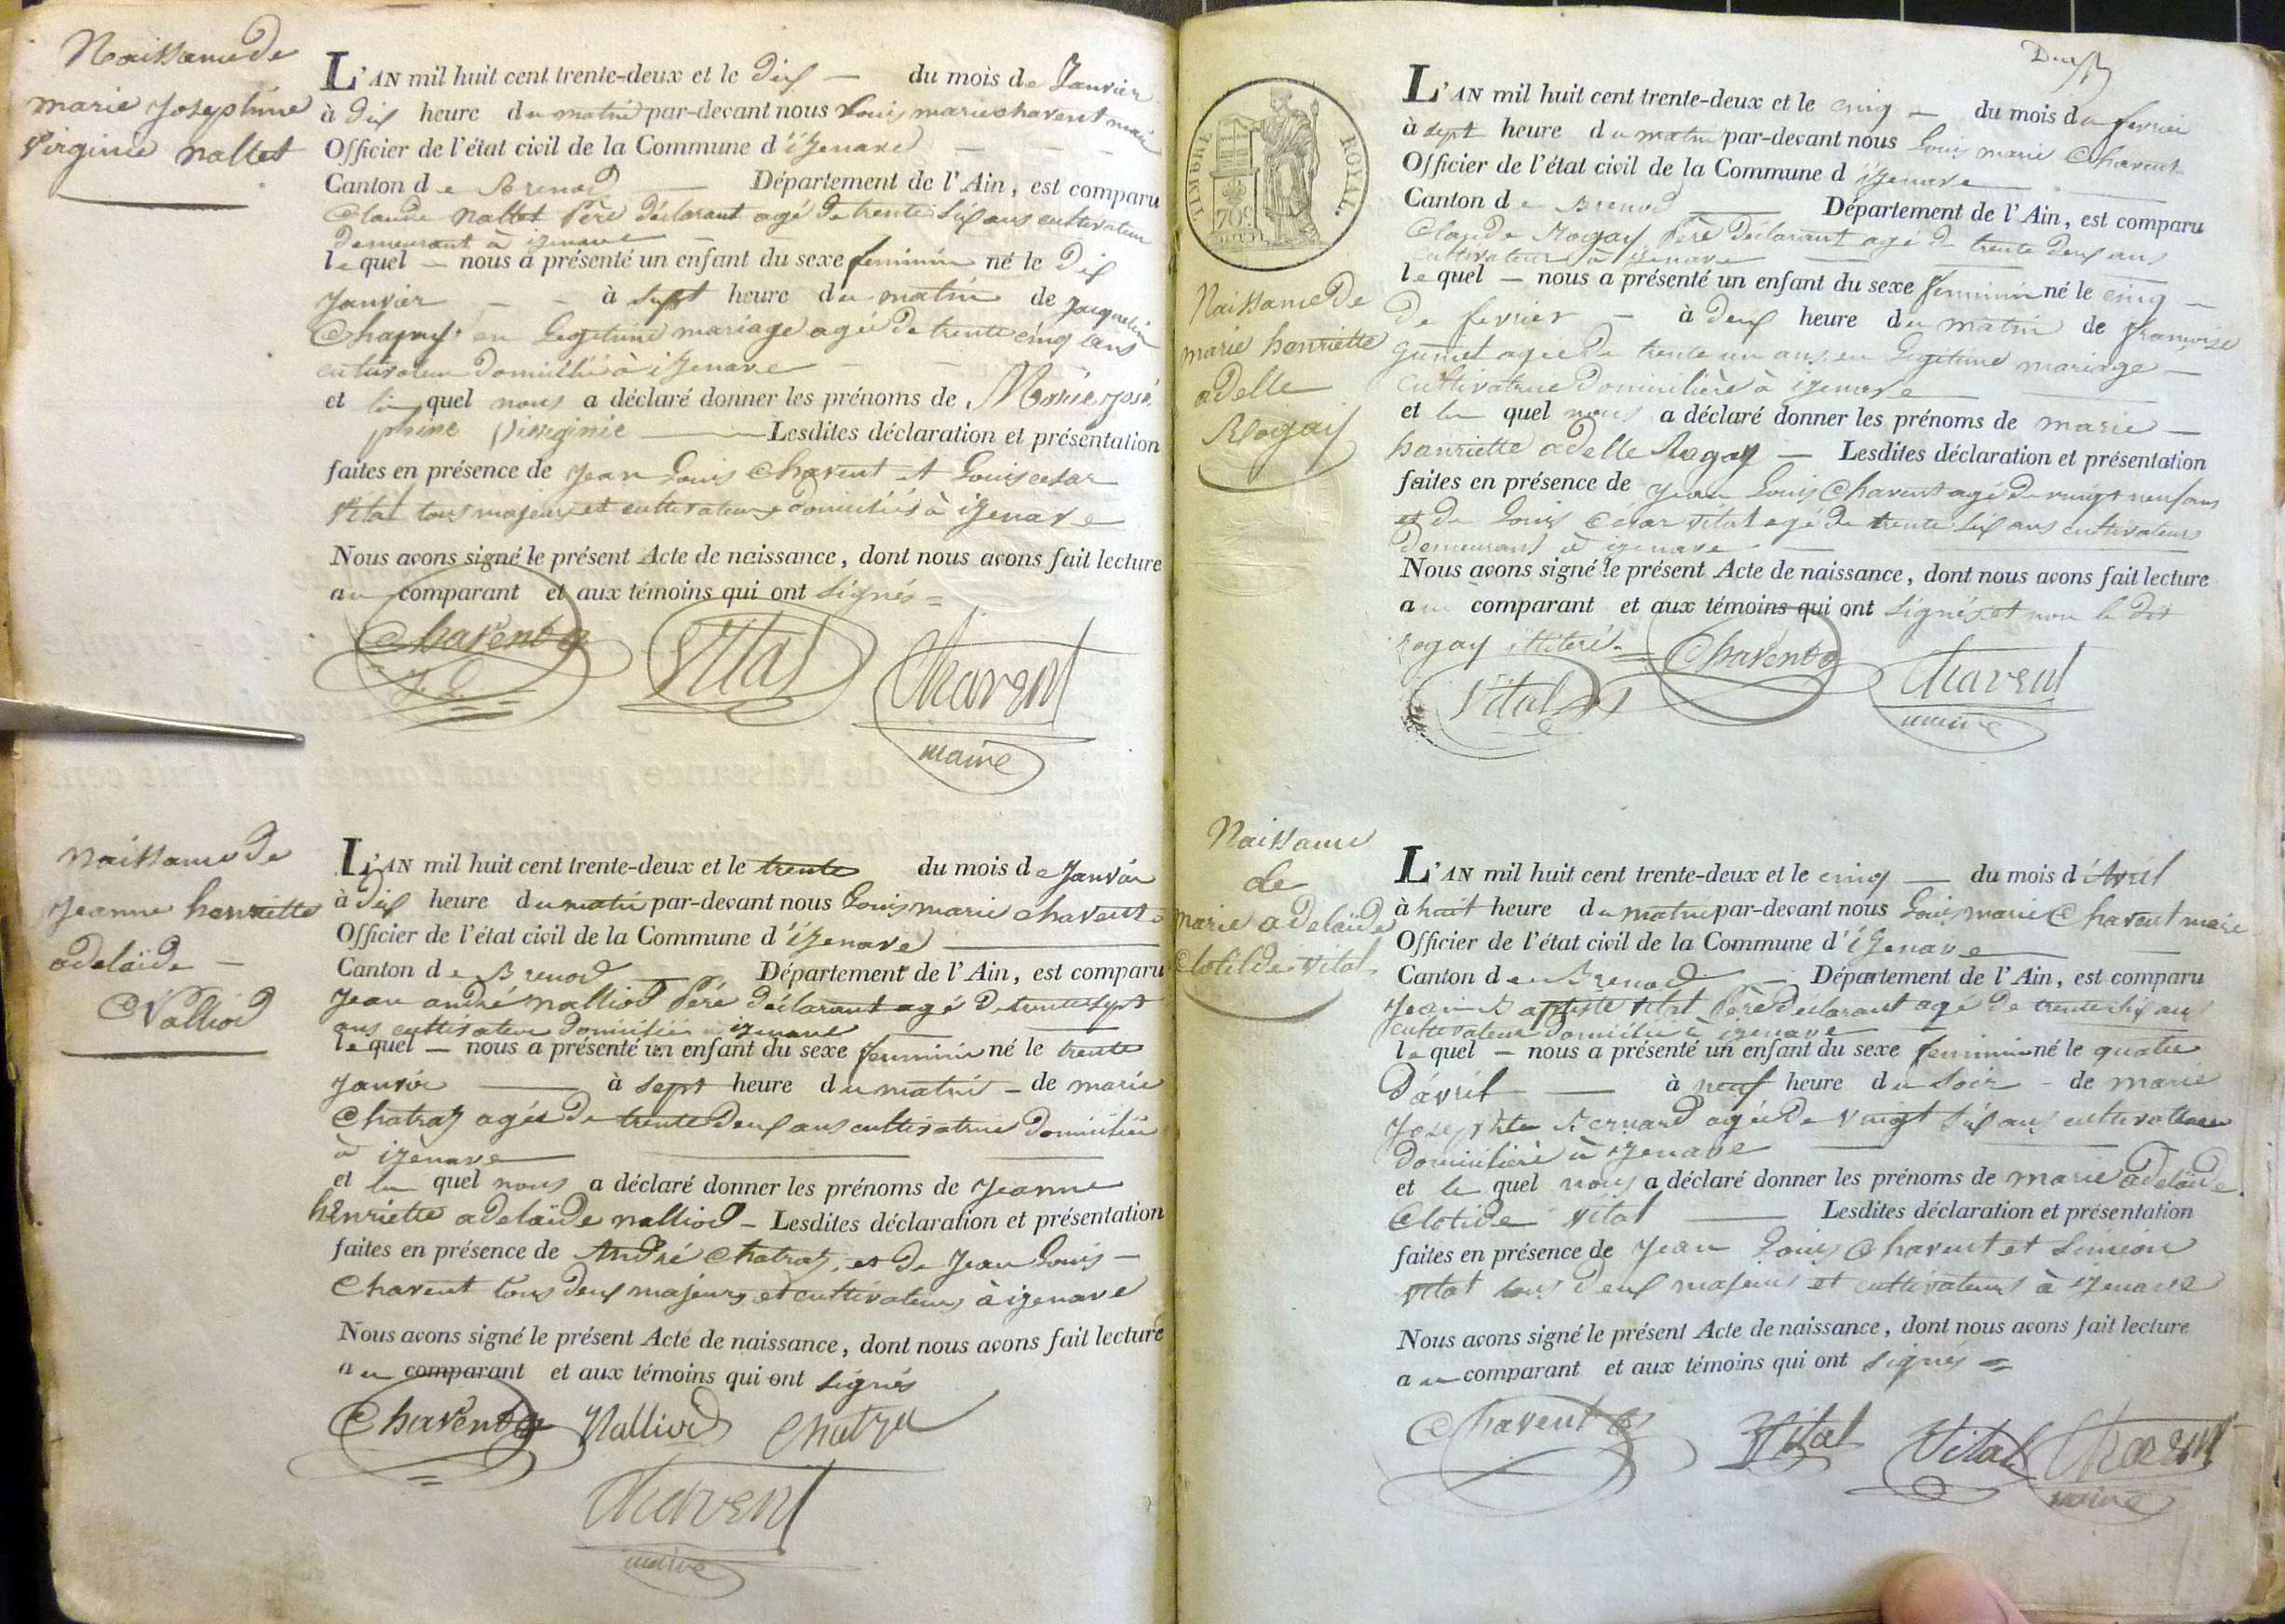 Naissance de
marie Josephine
Virginie nallet
L'AN mil huit cent trente-deux et le dix — du mois de Janvier
à dix heure du matin par-devant nous Louis marie chavent maire
Officier de l'état civil de la Commune d'izenave
Canton de Brenod — Département de l'Ain, est comparu
Claude nallet Père déclarant agé de trente six ans cultivateur
demeurant à izenave
lequel — nous a présenté un enfant du sexe feminin né le dix
Janvier — à sept heure du matin de jacqueline
en Legitime mariage agée de trente cinq ans
domicilié à izenave
et le quel nous a déclaré donner les prénoms de Marie josé
phine virginie — Lesdites déclaration et présentation
faites en présence de jean Louis Chavent et Louis cesar
Vital tous majeurs et cultivateurs domiciliés à izenave
Nous avons signé le présent Acte de naissance, dont nous avons fait lecture
au comparant et aux témoins qui ont signés =
Chavent Vital Chavent
maire
naissance de
jeanne henriette
adelaïde —
Nalliod
L'AN mil huit cent trente-deux et le trente du mois de janvier
à dix heure du matin par-devant nous Louis marie chavent
Officier de l'état civil de la Commune d'izenave
Canton de Brenod — Département de l'Ain, est comparu
jean andré nalliod Père déclarant agé de trente sept
ans cultivateur domicilié à izenave
lequel — nous a présenté un enfant du sexe feminin né le trente
janvier — à sept heure du matin — de marie
Chatraz agée de trente deux ans cultivatrice domiciliée
à izenave
et le quel nous a déclaré donner les prénoms de jeanne
henriette adelaïde nalliod — Lesdites déclaration et présentation
faites en présence de André Chatraz, et de jean Louis —
Chavent tous deux majeurs et cultivateurs à izenave
Nous avons signé le présent Acte de naissance, dont nous avons fait lecture
au comparant et aux témoins qui ont signés
Chavent Nalliod Chatra
Chavent
maire
Deux
TIMBRE ROYAL.
70c.
Naissance de
marie henriette
adelle
Rogay
L'AN mil huit cent trente-deux et le cinq — du mois de fevrier
à sept heure du matin par-devant nous Louis marie Chavent
Officier de l'état civil de la Commune d'izenave
Canton de Brenod — Département de l'Ain, est comparu
Claude Rogay Père déclarant agé de trente deux ans
cultivateur à izenave
lequel — nous a présenté un enfant du sexe feminin né le cinq —
De fevrier — à deux heure du matin de françoise
agée de trente un ans en Legitime mariage —
Cultivatrice domicilière à izenave
et le quel nous a déclaré donner les prénoms de marie —
henriette adelle Rogay — Lesdites déclaration et présentation
faites en présence de jean Louis Chavent agé de vingt neuf ans
et de Louis César Vital agé de trente six ans cultivateurs
demeurans à izenave
Nous avons signé le présent Acte de naissance, dont nous avons fait lecture
au comparant et aux témoins qui ont signés et non le dit
rogay illiteré.
Vital Chavent Chavent
maire
Naissance
de
marie adelaïde
Clotilde Vital
L'AN mil huit cent trente-deux et le cinq — du mois d'Avril
à huit heure du matin par-devant nous Louis marie Chavent maire
Officier de l'état civil de la Commune d'izenave
Canton de Brenod — Département de l'Ain, est comparu
jean Baptiste Vital Père déclarant agé de trente six ans
cultivateur domicilié à izenave
lequel — nous a présenté un enfant du sexe feminin né le quatre
d'avril — à neuf heure du soir — de marie
Josephte Bernard agée de vingt six ans cultivatrice
domicilière à izenave
et le quel nous a déclaré donner les prénoms de marie adelaïde
Clotide Vital — Lesdites déclaration et présentation
faites en présence de jean Louis Chavent et Simeon
Vital tous deux majeurs et cultivateurs à izenave
Nous avons signé le présent Acte de naissance, dont nous avons fait lecture
au comparant et aux témoins qui ont signés =
Chavent Vital Vital Chavent
maire